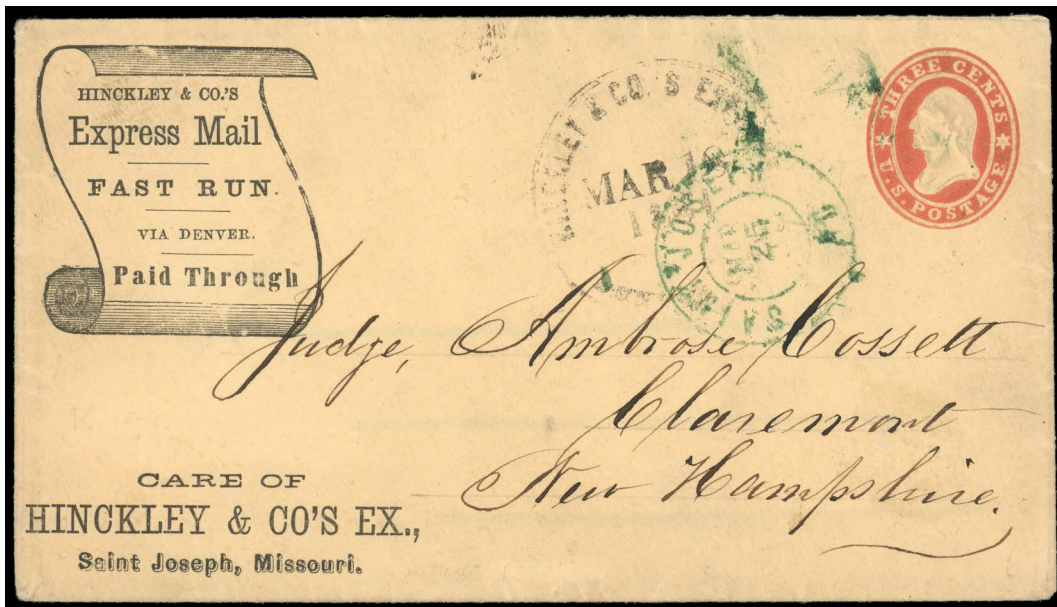 HINCKLEY & CO.'S
Express Mail
FAST RUN.
VIA DENVER.
Paid Through
HINCKLEY & CO.'S
MAR
THREE CENTS
U.S. POSTAGE
Judge, Ambrose Cossett
Claremont
New Hampshire.
CARE OF
HINCKLEY & CO'S EX.,
Saint Joseph, Missouri.